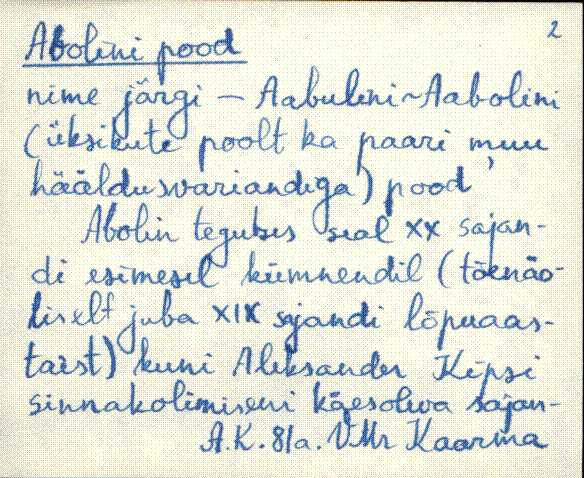 2
Abolini pood
nime järgi – Aabuleni ~ Aabolini
(üksikute poolt ka paari muu
hääldusvariandiga) pood
Abolin tegutses seal XX sajan-
di esimesel kümnendil (tõenäo-
liselt juba XIX sajandi lõpuaas-
taist) kuni Aleksander Kipsi
sinnakolimiseni käesoleva sajan-
A.K. 81a. VMr Kaarma